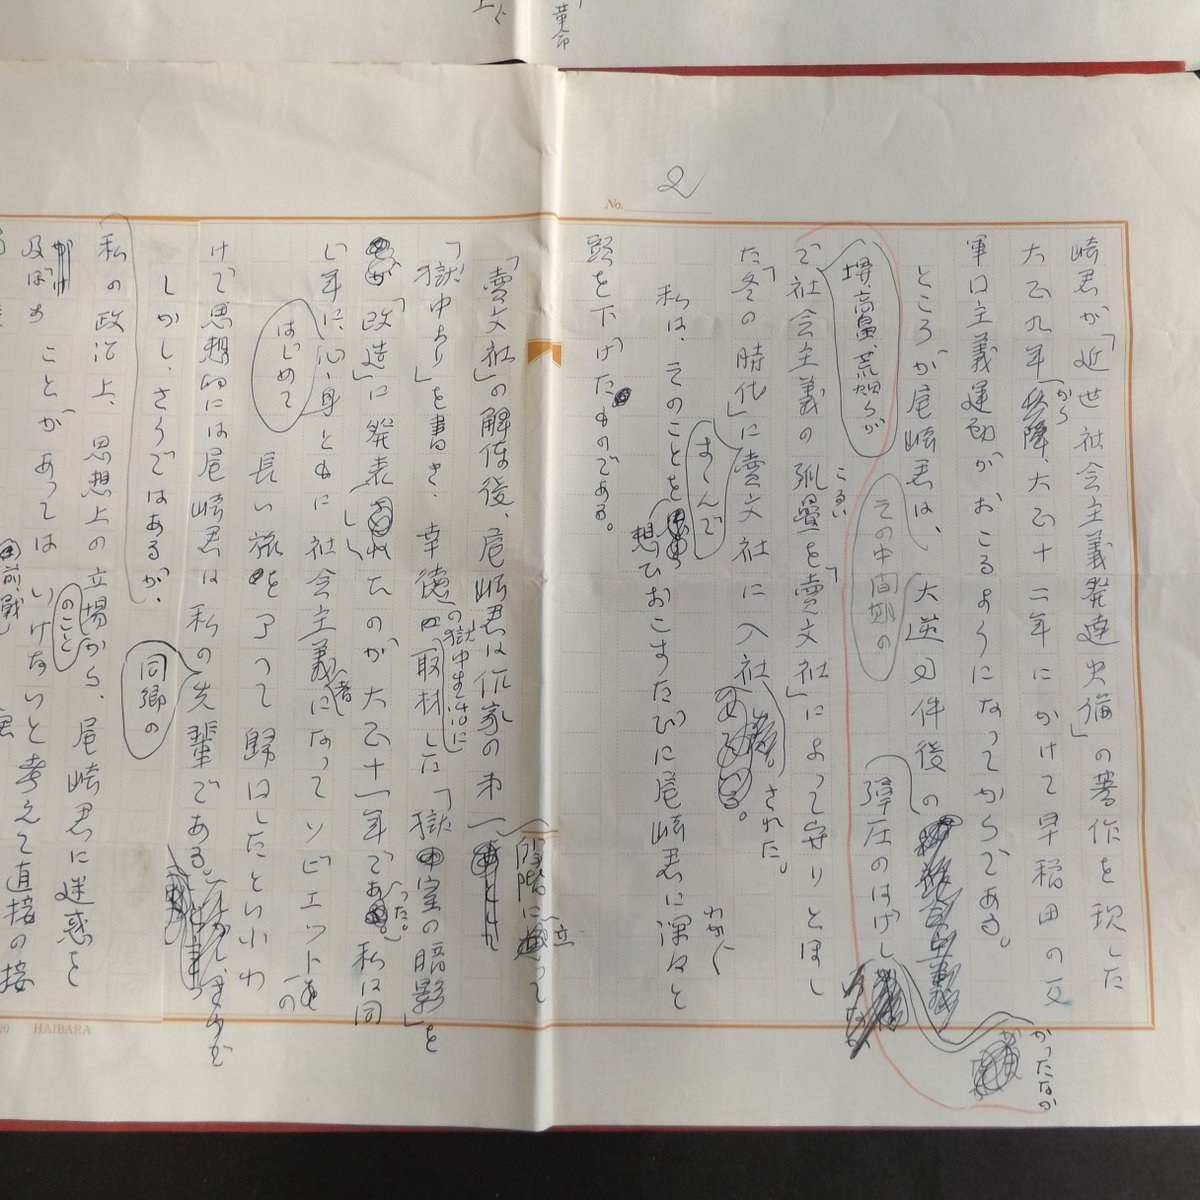 革命
No. 2
崎君が「近世社会主義発達史論」の著作を現した
大正九年から大正十二年にかけて早稲田の反
軍は主義運動がおこるようになってからである。
ところが尾崎君は、大逆事件後の
弾圧のはげし
かったなか
その中間期の
堺、高畠、荒畑らが
で社会主義の孤塁を「売文社」によって守りとほし
こるい
た「冬の時代」に売文社に入社された。
すゝんで
私は、そのことを想ひおこすたびに尾崎君に深々と
ふかく
頭を下げたものである。
「売文社」の解体後、尾崎君は作家の第一段階に立って
「獄中より」を書き、幸徳の獄中生活に取材した「獄室の暗影」を
「改造」に発表したのが大正十一年であった。私は同
じ年に、心身ともに社会主義者になってソビエットへの
はじめて
長い旅を了って帰はしたといふわ
けで思想的には尾崎君は私の先輩である。
しかし、さうではあるが、
同郷の
私の政治上、思想上の立場のことから、尾崎君に迷惑を
及ぼすことがあってはいけないと考えて直接の接
前、戦
20 HAIBARA